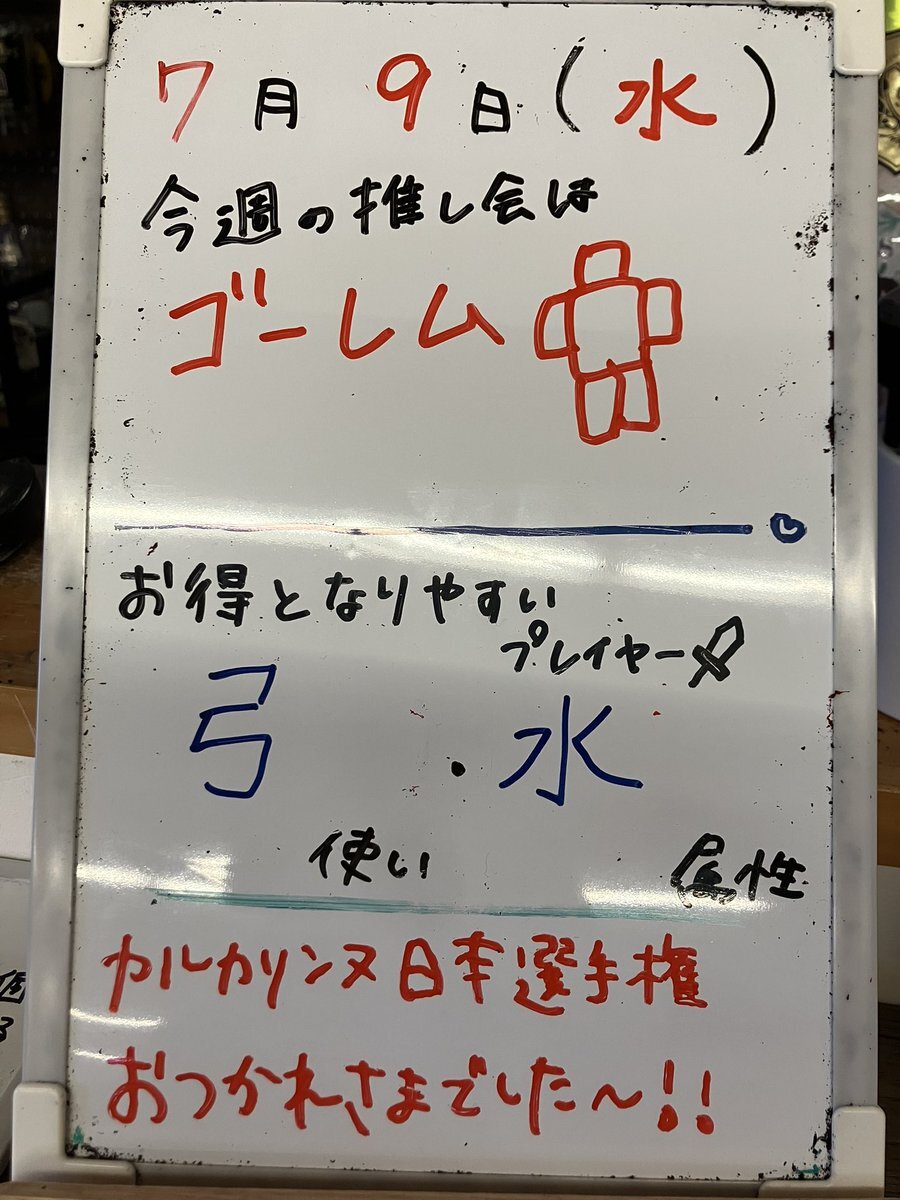 7月9日(水)
今週の推し会は
ゴーレム
お得となりやすい
プレイヤー
弓・水
使い 属性
カルカソンヌ日本選手権
おつかれさまでした〜!!